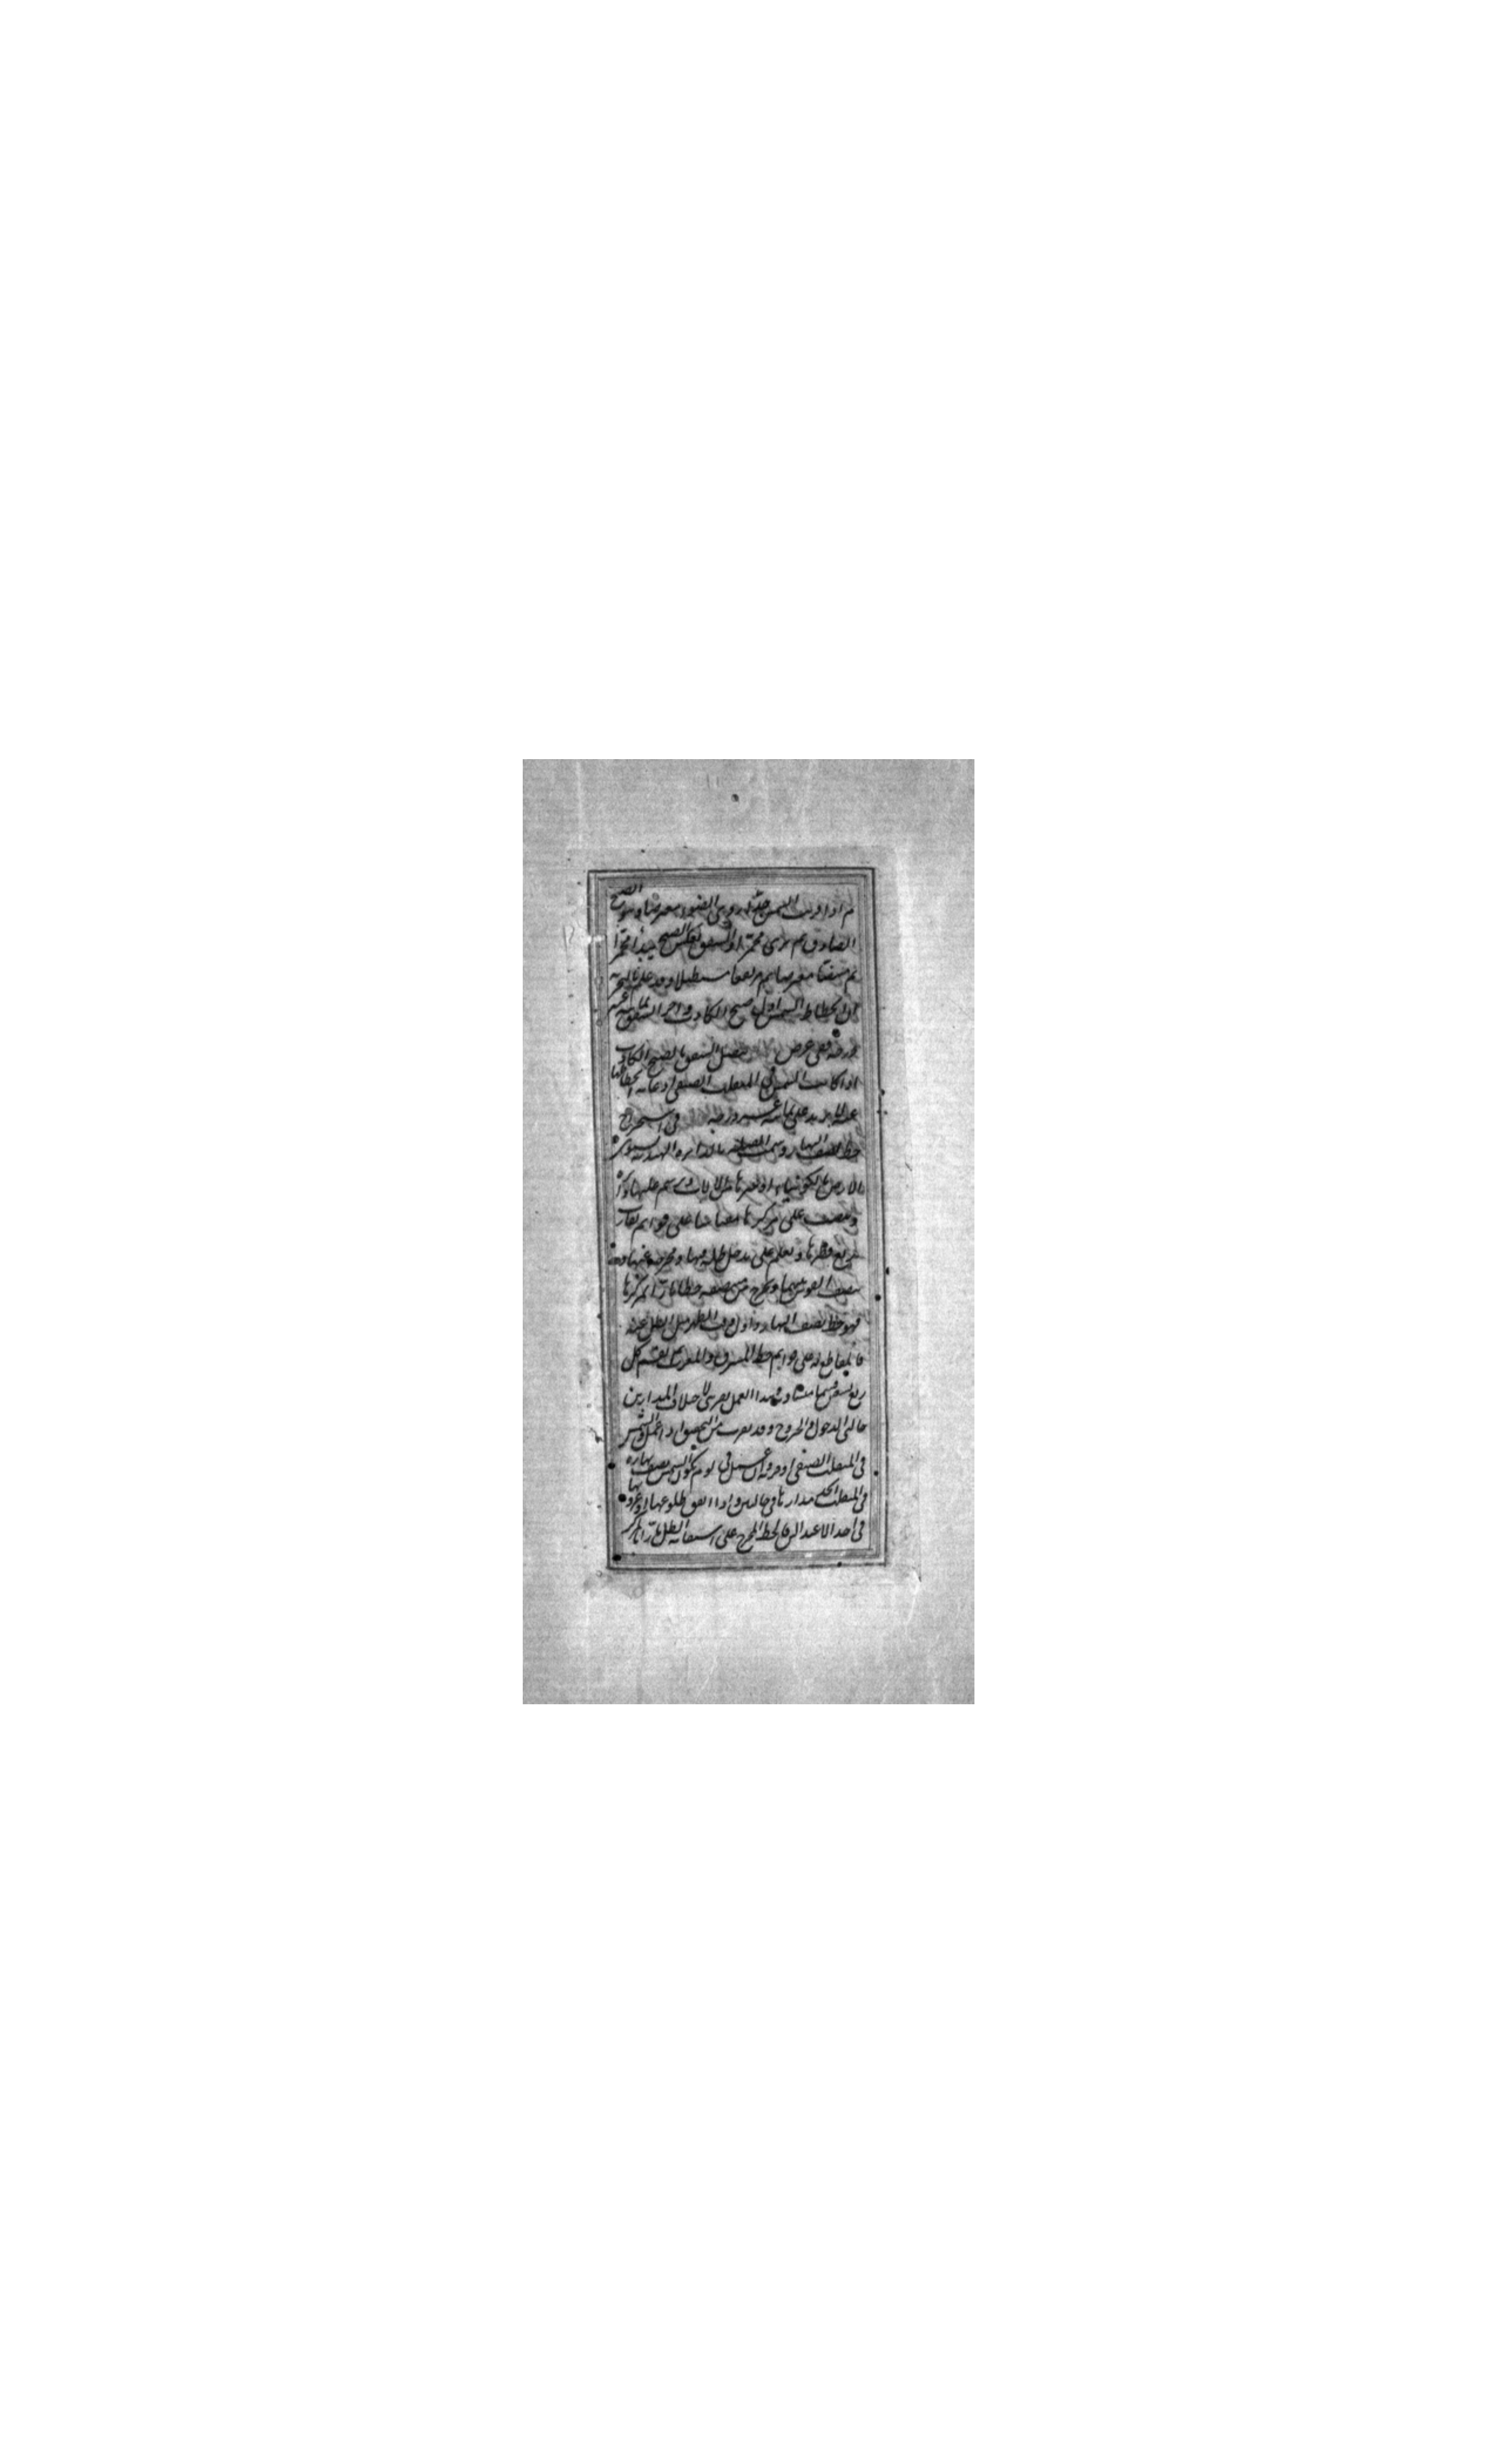 ثم اذا قربت الشمس جدا يرى الضوء معترضا وهو الصبح
الصادق ثم يرى محمرا والشفق بعكس الصبح يبدأ محمرا
ثم مبيضا معترضا ثم مرتفعا مستطيلا وقد علم بالتجربة
ان انحطاط الشمس اول الصبح الكاذب واخر الشفق ثمانية عشر
درجة ففي عرض يتصل الشفق بالصبح الكاذب
اذا كانت الشمس في المنقلب الصيفي اذ غاية انحطاطها
لا يزيد على ثمانية عشر درجة في استخراج
خط نصف النهار وسمت القبلة بالدائرة الهندية يسوى
الارض بالكونيا او نحرها مثل وترسم عليها دائرة
وينصب على مركزها مقياسا على قوائم يقارب
ربع قطرها وتعلم على مدخل ظله فيها ومخرجه عنها
نصف القوس بينهما وتخرج من منتصفه خطا مارا بمركزها
فهو خط نصف النهار واول وقت الظهر ميل الظل عنه
فالمقاطع له على قوائم خط المشرق والمغرب ثم تقسم كل
ربع تسعين قسما متساوية وهذا العمل تقريبي لاختلاف المدارين
حالتي الدخول والخروج وقد يقرب من التحقيق اذا عمل والشمس
في المنقلب الصيفي في يوم تكون الشمس نصف نهاره
في المنقلب مدارها في حالتين واذا اتفق طلوعها او غروبها
في احد الاعتدالين فالخط المخرج على استقامة الظل مارا بالمركز